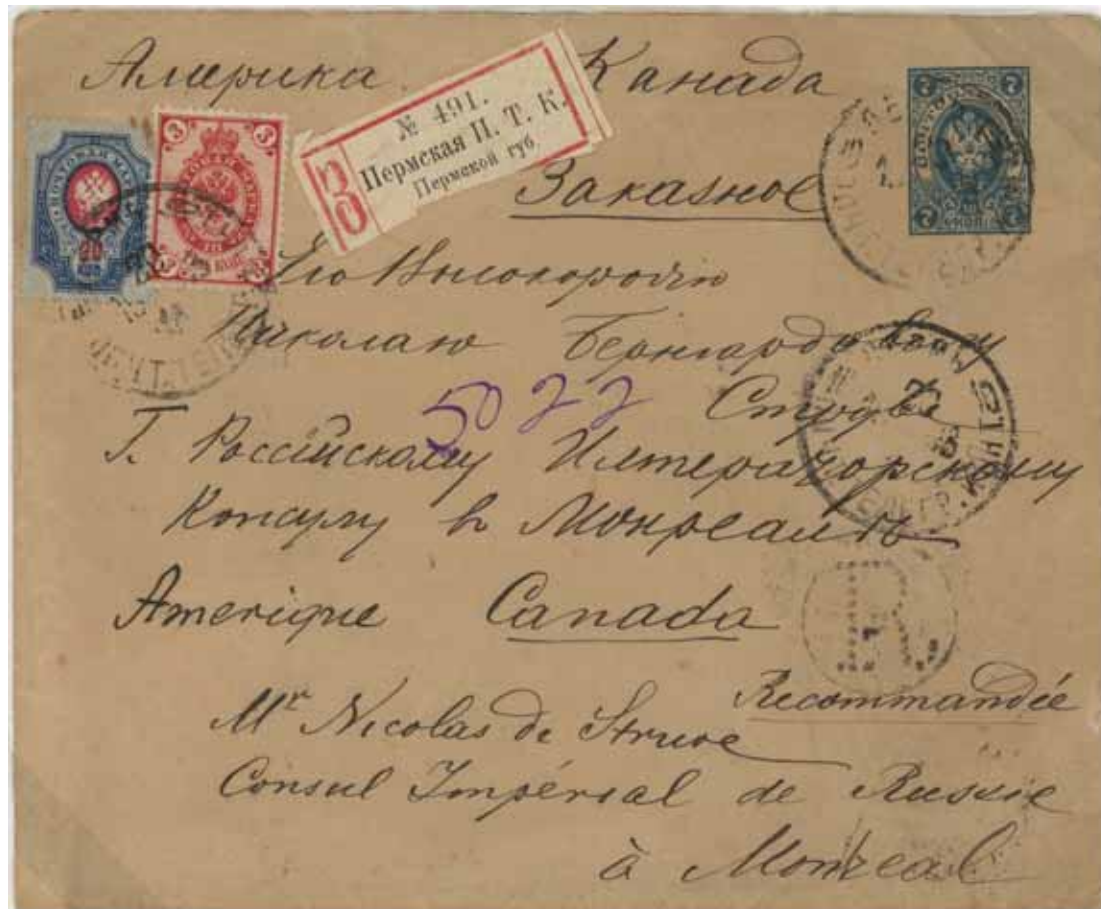 Америка Канада
№ 491.
Пермская П. Т. К.
Пермской губ.
З
Заказное
7 7
3 3
20
Его Высокородию
Николаю Бернгардовичу
Струве
5022
Г. Российскому Императорскому
Консулу в Монреалѣ
Amerique Canada
R
Recommandée
Mr Nicolas de Struve
Consul Impérial de Russie
à Montreal